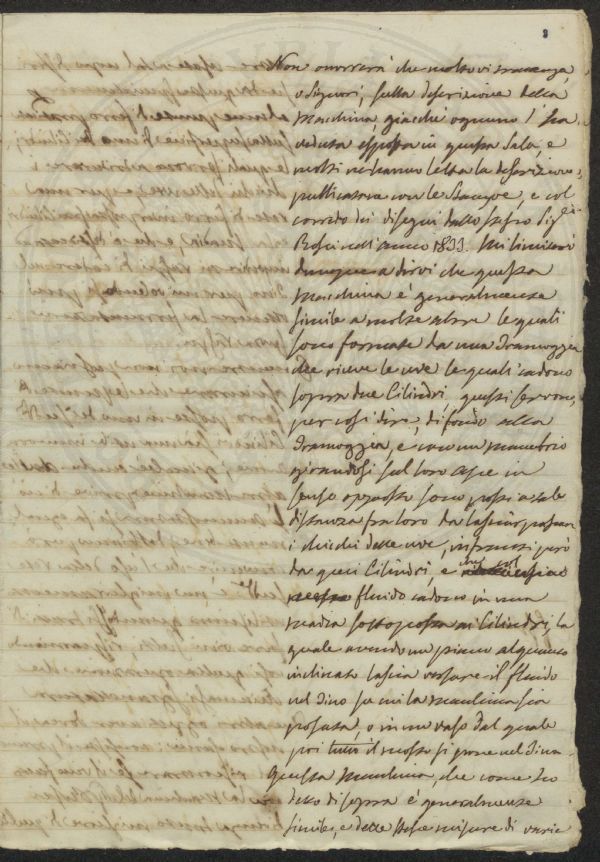 8
Non occorrerà che molto vi trattenga,
o Signori, sulla descrizione della
Macchina, giacchè ognuno l'ha
veduta esposta in questa Sala, e
molti ne hanno letta la descrizione
pubblicatane con le Stampe, e col
corredo dei disegni dallo stesso Sig.re
nell'anno 1833. Mi limiterò
dunque a dirvi che questa
macchina è generalmente
simile a molte altre le quali
sono formate da una Tramoggia
che riceve le uve le quali cadono
sopra due Cilindri, questi servono,
per così dire, di fondo alla
Tramoggia, e con un manubrio
girandosi sul loro asse in
senso opposto sono posti a tale
distanza fra loro da lasciar passare
i chicchi delle uve, infranti però
da quei Cilindri, e che col
fluido cadono in una
madia sottoposta ai Cilindri, la
quale avendo un piano alquanto
inclinato lascia versare il fluido
nel Tino su cui la macchina sia
posata, o in un vaso dal quale
poi tutto il mosto si pone nel Tino.
Questa Macchina, che come ho
detto di sopra è generalmente
simile, e delle stesse misure di varie